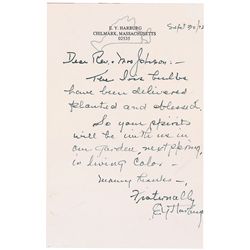 Sept 30/72
E. Y. HARBURG
CHILMARK, MASSACHUSETTS
02535
Dear Rev. & Mrs Johnson: —
The Iris bulbs
have been delivered
planted and blessed.
So your spirits
will be with us in
our garden next spring,
in living color —
Many thanks —
Fraternally
EYHarburg